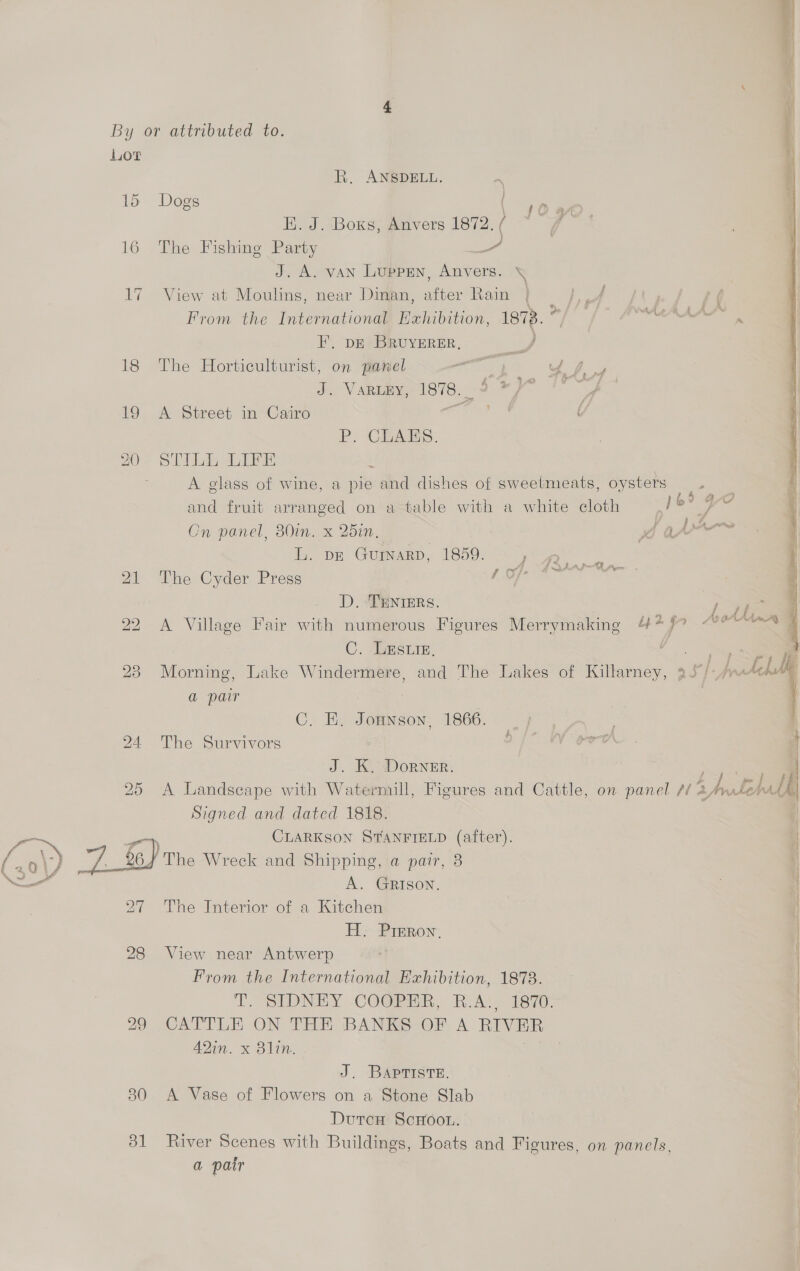 4
By or attributed to.
LOT
R. ANSDELL.
15 Dogs
E. J. BOKS, Anvers 1872.
16 The Fishing Party
J. A. VAN LUPPEN, Anvers.
17 View at Moulins, near Dinan, after Rain
From the International Exhibition, 1873.
F. DE BRUYERER,
18 The Horticulturist, on panel
J. VARLEY, 1878.
19 A Street in Cairo
P. CLAES.
20 STILL LIFE
A glass of wine, a pie and dishes of sweetmeats, oysters
and fruit arranged on a table with a white cloth
On panel, 30in. x 25in.
L. DE GUINARD, 1859.
21 The Cyder Press
D. TENIERS.
22 A Village Fair with numerous Figures Merrymaking
C. LESLIE,
23 Morning, Lake Windermere, and The Lakes of Killarney,
a pair
C. E. JOHNSON, 1866.
24 The Survivors
J. K. DORNER.
25 A Landscape with Watermill, Figures and Cattle, on panel
Signed and dated 1818.
CLARKSON STANFIELD (after).
7. 26 The Wreck and Shipping, a pair, 3
A. GRISON.
27 The Interior of a Kitchen
H. PIERON,
28 View near Antwerp
From the International Exhibition, 1873.
T. SIDNEY COOPER, R.A., 1870.
29 CATTLE ON THE BANKS OF A RIVER
42in. x 31in.
J. BAPTISTE.
30 A Vase of Flowers on a Stone Slab
DUTCH SCHOOL.
31 River Scenes with Buildings, Boats and Figures, on panels,
a pair